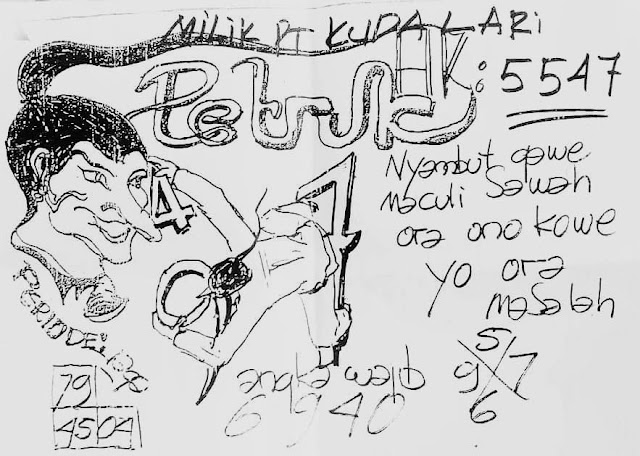 MILIK PT KUDA LARI
Petruk HK: 5547
Nyambut gawe
maculi sawah
ora ono kowe
yo ora
masalah
4
1
PERIODE:
angka wajib
6 9 4 0
5
9 7
6
79
45 04